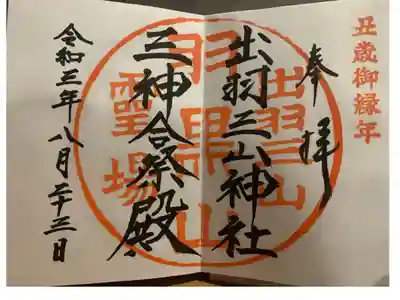 丑歳御縁年
奉拝
出羽三山神社
三神合祭殿
令和三年八月二十三日
出羽三山
羽黒山
霊場